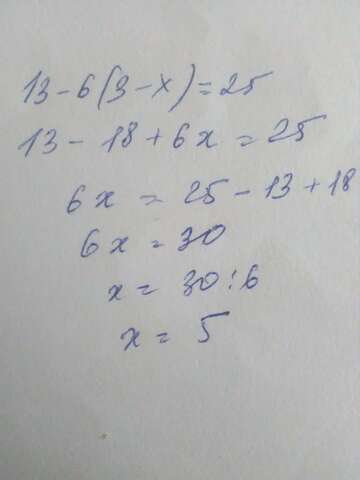 13 - 6(3 - x) = 25
13 - 18 + 6x = 25
6x = 25 - 13 + 18
6x = 30
x = 30 : 6
x = 5